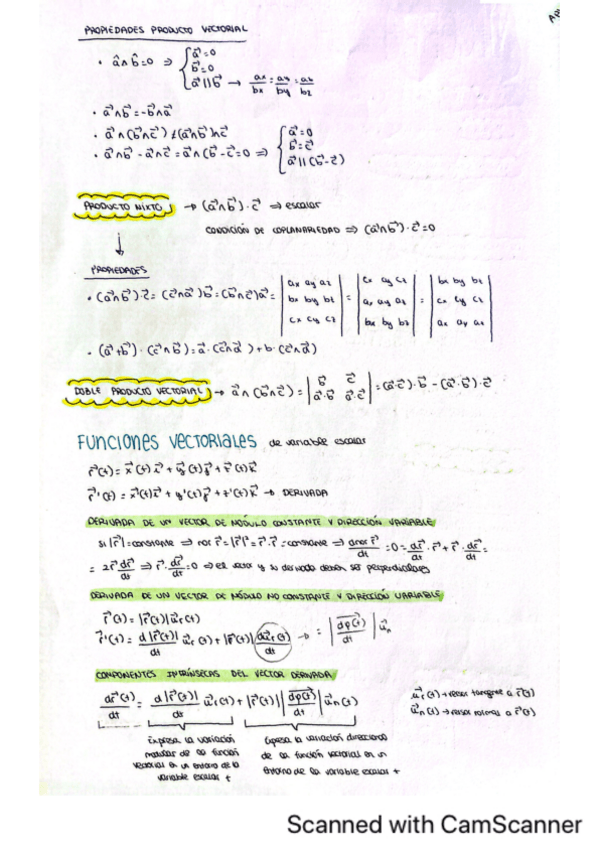 PROPIEDADES PRODUCTO VECTORIAL
• â∧b̂=0 ⇒ { a⃗=0
b⃗=0
a⃗∥b⃗ → ax/bx = ay/by = az/bz
• a⃗∧b⃗=-b⃗∧a⃗
• a⃗∧(b⃗∧c⃗)≠(a⃗∧b⃗)∧c⃗
• a⃗∧b⃗ - a⃗∧c⃗ = a⃗∧(b⃗-c⃗=0 ⇒ { a⃗=0
b⃗=c⃗
a⃗∥(b⃗-c⃗)
PRODUCTO MIXTO → (a⃗∧b⃗)·c⃗ ⇒ escalar
CONDICIÓN DE COPLANARIEDAD ⇒ (a⃗∧b⃗)·c⃗=0
↓
PROPIEDADES
• (a⃗∧b⃗)·c⃗ = (c⃗∧a⃗)b⃗ = (b⃗∧c⃗)a⃗ = | ax ay az | = | cx cy cz | = | bx by bz |
| bx by bz | | ax ay az | | cx cy cz |
| cx cy cz | | bx by bz | | ax ay az |
• (a⃗+b⃗)·(c⃗∧b⃗)=a⃗·(c⃗∧d⃗)+b·(c⃗∧d⃗)
DOBLE PRODUCTO VECTORIAL → a⃗∧(b⃗∧c⃗) = | b⃗ c⃗ | = (a⃗·c⃗)·b⃗ - (a⃗·b⃗)·c⃗
| a⃗·b⃗ a⃗·c⃗ |
FUNCIONES VECTORIALES de variable escalar
r⃗(t) = x⃗(t)i⃗ + y⃗(t)j⃗ + z⃗(t)k⃗
r⃗'(t) = x'(t)i⃗ + y'(t)j⃗ + z'(t)k⃗ → DERIVADA
DERIVADA DE UN VECTOR DE MÓDULO CONSTANTE Y DIRECCIÓN VARIABLE
si |r⃗|=constante ⇒ r⃗·r⃗=|r⃗|²=r⃗·r⃗=constante ⇒ dr⃗·r⃗/dt =0= dr⃗/dt·r⃗+r⃗·dr⃗/dt=
= 2r⃗ dr⃗/dt ⇒ r⃗·dr⃗/dt=0 ⇒ el vector y su derivada deben ser perpendiculares
DERIVADA DE UN VECTOR DE MÓDULO NO CONSTANTE Y DIRECCIÓN VARIABLE
r⃗(t) = |r⃗(t)|u⃗r(t)
r⃗'(t) = d|r⃗(t)|/dt u⃗r(t) + |r⃗(t)| du⃗r(t)/dt → = |dφ(t)/dt| u⃗n
COMPONENTES INTRÍNSECAS DEL VECTOR DERIVADA
dr⃗(t)/dt = d|r⃗(t)|/dt u⃗r(t) + |r⃗(t)| |dφ(t)/dt| u⃗n(t)
u⃗r(t) → vector tangente a r⃗(t)
u⃗n(t) → vector normal a r⃗(t)
Expresa la variación
modular de la función
vectorial en un entorno de la
variable escalar t
Expresa la variación direccional
de la función vectorial en un
entorno de la variable escalar t
Scanned with CamScanner